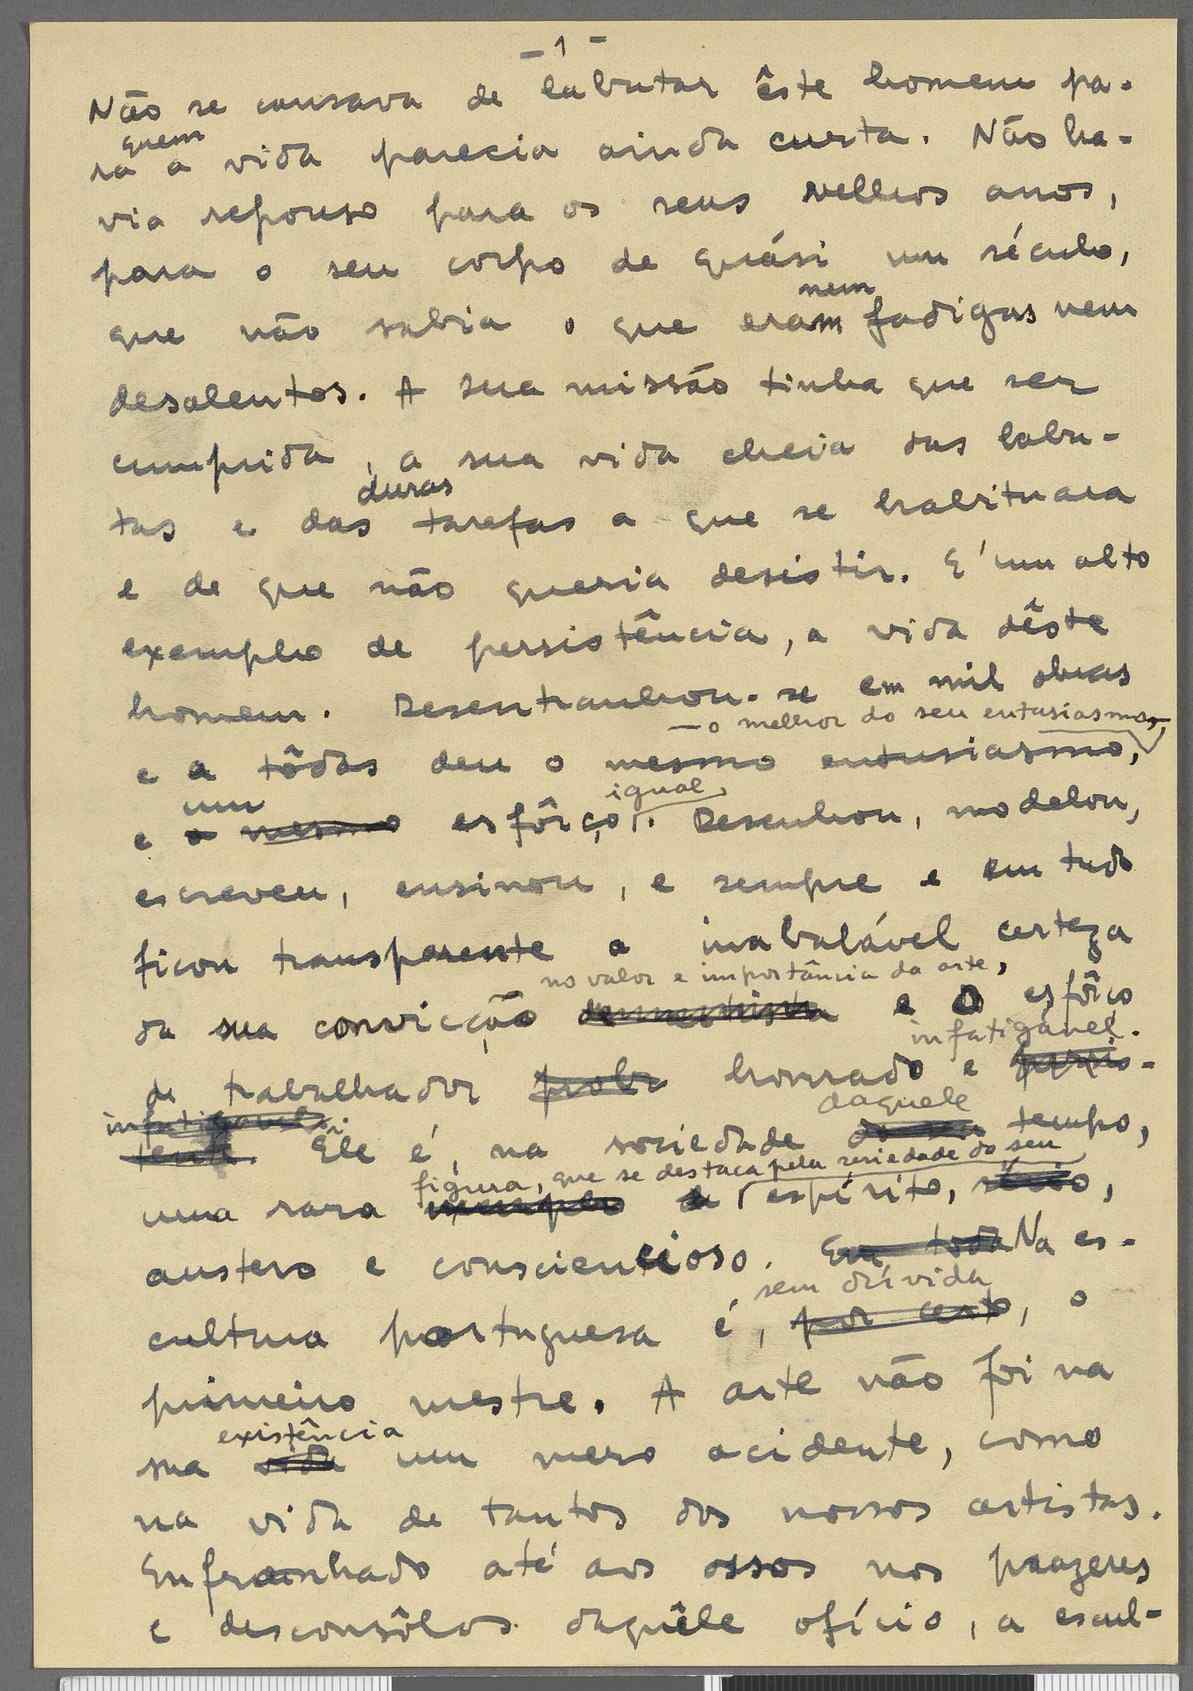 – 1 –
Não se cansava de labutar êste homem pa-
quem
ra a vida parecia ainda curta. Não ha-
via repouso para os seus velhos anos,
para o seu corpo de quási um século,
nem
que não sabia o que eram fadigas nem
desalentos. A sua missão tinha que ser
cumprida, a sua vida cheia das labu-
duras
tas e das tarefas a que se habituara
e de que não queria desistir. E' um alto
exemplo de persistência, a vida dêste
homem. Desentranhou-se em mil obras
— o melhor do seu entusiasmo,
e a tôdas deu o mesmo entusiasmo,
um igual.
e o mesmo esfôrço. Desenhou, modelou,
escreveu, ensinou, e sempre e em tudo
ficou transparente a inabalável certeza
no valor e importância da arte,
da sua convicção e o esfôrço
infatigável.
de trabalhador probo honrado e persis-
daquele
infatigável
tente. Ele é, na sociedade do seu tempo,
figura, que se destaca pela seriedade do seu
uma rara exemplo de espírito, sério,
austero e consciencioso. Em toda Na es-
sem dúvida
cultura portuguesa é, por certo, o
primeiro mestre. A arte não foi na
existência
sua vida um mero acidente, como
na vida de tantos dos nossos artistas.
Enfronhado até aos ossos nos prazeres
e desconsôlos daquêle ofício, a escul-